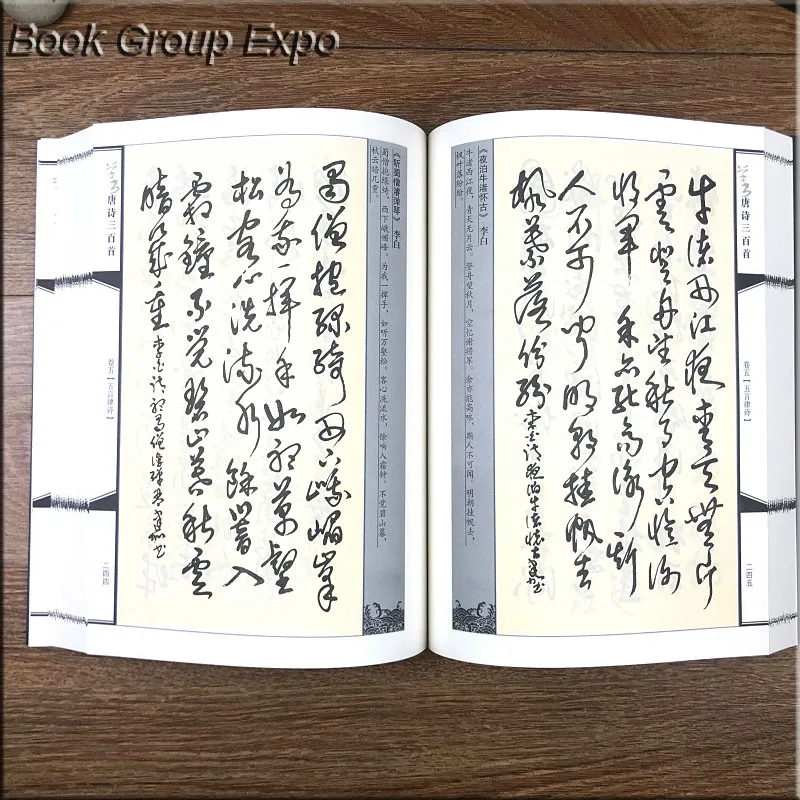 Book Group Expo
唐诗三百首
卷五【五言律诗】
二四四
《听蜀僧濬弹琴》 李白
蜀僧抱绿绮，西下峨嵋峰。为我一挥手，如听万壑松。客心洗流水，馀响入霜钟。不觉碧山暮，
秋云暗几重。
蜀僧抱綠綺西下峨嵋峯
為我一揮手如聽萬壑
松客心洗流水餘響入
霜鐘不覺碧山暮秋雲
暗幾重 李白詩聽蜀僧濬彈琴
唐诗三百首
卷五【五言律诗】
二四五
《夜泊牛渚怀古》 李白
牛渚西江夜，青天无片云。登舟望秋月，空忆谢将军。余亦能高咏，斯人不可闻。明朝挂帆去，
枫叶落纷纷。
牛渚西江夜青天無片
雲登舟望秋月空憶謝
將軍余亦能高詠斯
人不可聞明朝掛帆去
楓葉落紛紛 李白詩夜泊牛渚懷古